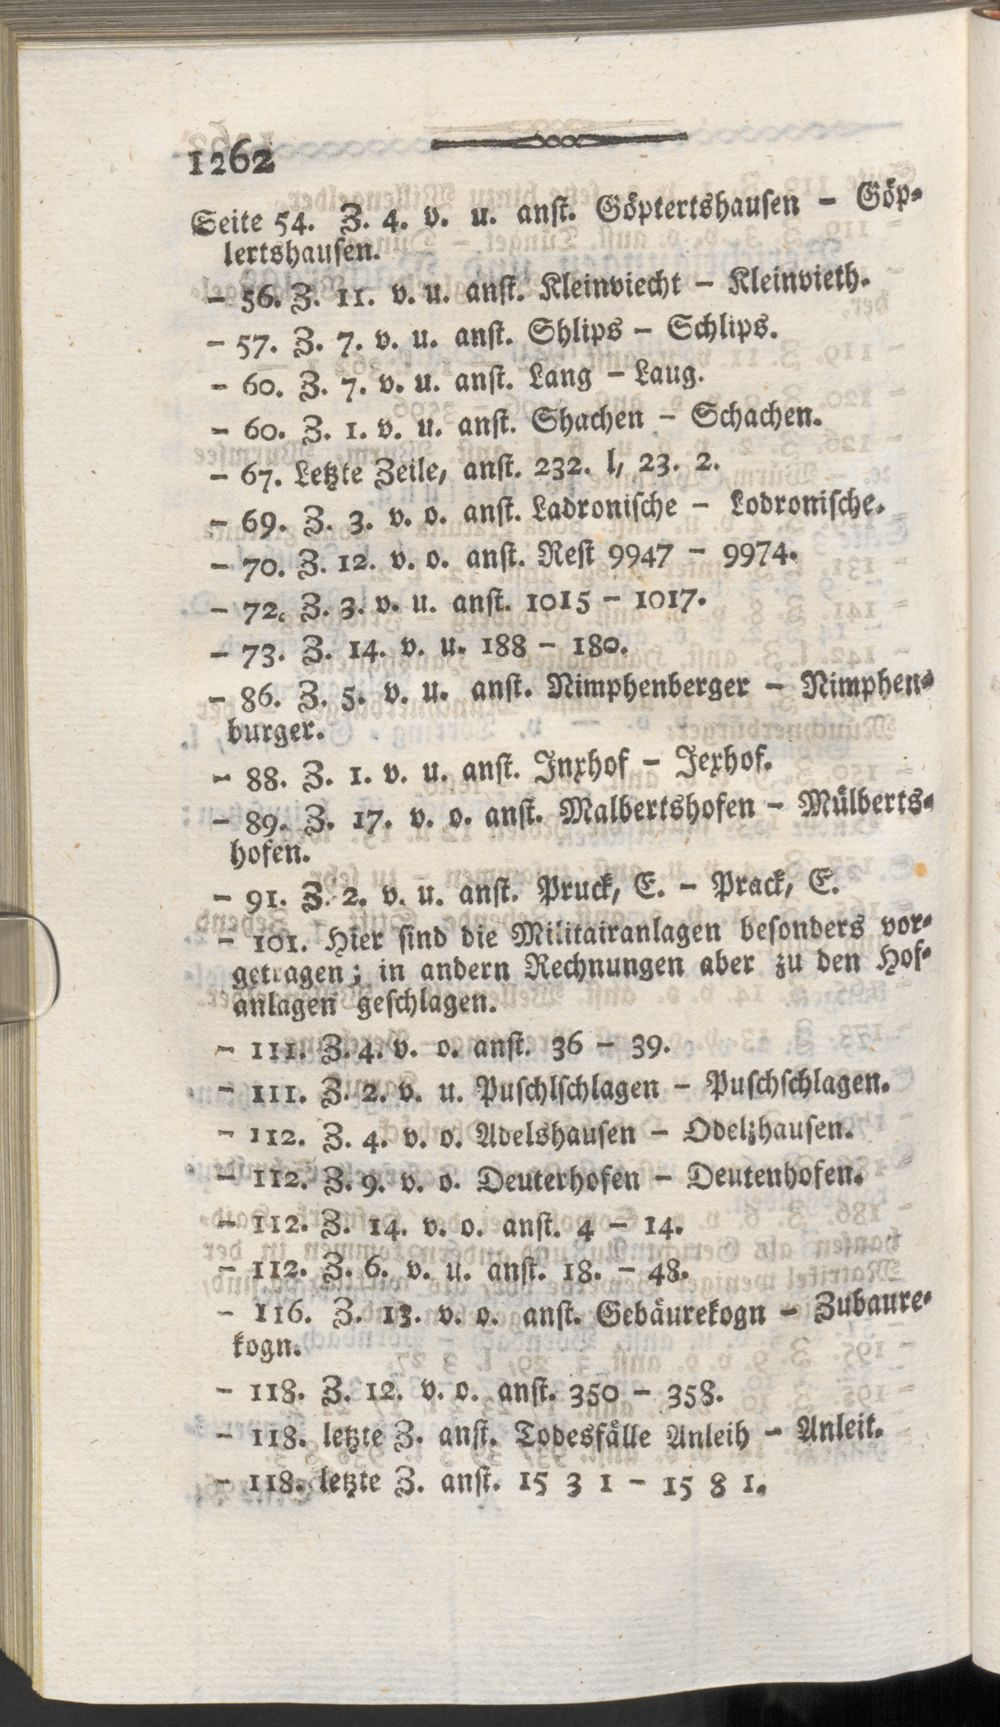 1262
Seite 54. Z. 4. v. u. anst. Göptertshausen – Göp-
lertshausen.
– 56. Z. 11. v. u. anst. Kleinviecht – Kleinvieth.
– 57. Z. 7. v. u. anst. Shlips – Schlips.
– 60. Z. 7. v. u. anst. Lang – Laug.
– 60. Z. 1. v. u. anst. Shachen – Schachen.
– 67. Letzte Zeile, anst. 232. l, 23. 2.
– 69. Z. 3. v. o. anst. Ladronische – Lodronische.
– 70. Z. 12. v. o. anst. Rest 9947 – 9974.
– 72. Z. 3. v. u. anst. 1015 – 1017.
– 73. Z. 14. v. u. 188 – 180.
– 86. Z. 5. v. u. anst. Nimphenberger – Nimphen-
burger.
– 88. Z. 1. v. u. anst. Inxhof – Jexhof.
– 89. Z. 17. v. o. anst. Malbertshofen – Mülberts-
hofen.
– 91. Z. 2. v. u. anst. Pruck, E. – Prack, E.
– 101. Hier sind die Militairanlagen besonders vor-
getragen; in andern Rechnungen aber zu den Hof-
anlagen geschlagen.
– 111. Z. 4. v. o. anst. 36 – 39.
– 111. Z. 2. v. u. Puschlschlagen – Puschschlagen.
– 112. Z. 4. v. o. Adelshausen – Odelzhausen.
– 112. Z. 9. v. o. Deuterhofen – Deutenhofen.
– 112. Z. 14. v. o. anst. 4 – 14.
– 112. Z. 6. v. u. anst. 18. – 48.
– 116. Z. 13. v. o. anst. Gebäurekogn – Zubaure-
kogn.
– 118. Z. 12. v. o. anst. 350 – 358.
– 118. letzte Z. anst. Todesfälle Anleih – Anleit.
– 118. letzte Z. anst. 15 3 1 – 15 8 1.